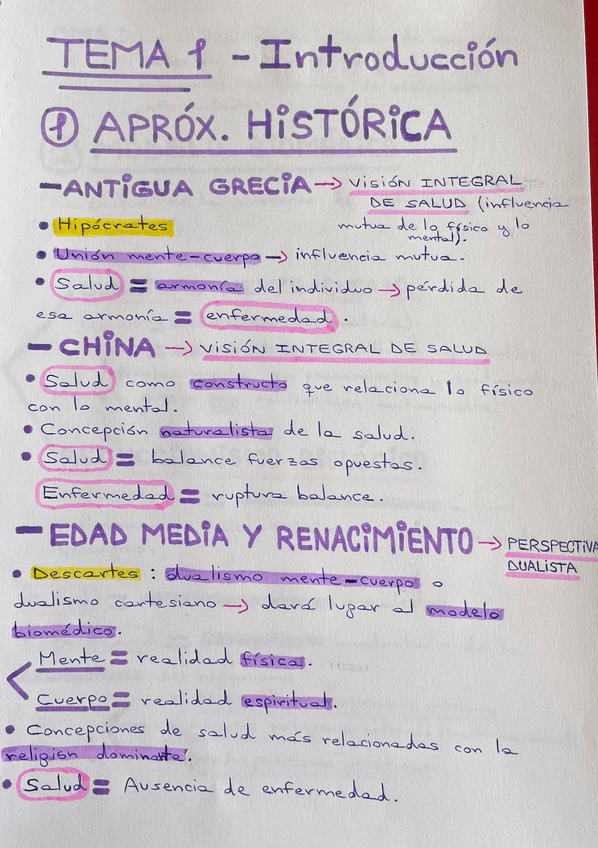 TEMA 1 - Introducción
① APRÓX. HISTÓRICA
- ANTIGUA GRECIA → VISIÓN INTEGRAL
DE SALUD (influencia
mutua de lo físico y lo
mental).
• Hipócrates
• Unión mente-cuerpo → influencia mutua.
• Salud = armonía del individuo → pérdida de
esa armonía = enfermedad.
- CHINA → VISIÓN INTEGRAL DE SALUD
• Salud como constructo que relaciona lo físico
con lo mental.
• Concepción naturalista de la salud.
• Salud = balance fuerzas opuestas.
Enfermedad = ruptura balance.
- EDAD MEDIA Y RENACIMIENTO → PERSPECTIVA
DUALISTA
• Descartes: dualismo mente-cuerpo o
dualismo cartesiano → dará lugar al modelo
biomédico.
Mente = realidad física.
Cuerpo = realidad espiritual.
• Concepciones de salud más relacionadas con la
religión dominante.
• Salud = Ausencia de enfermedad.